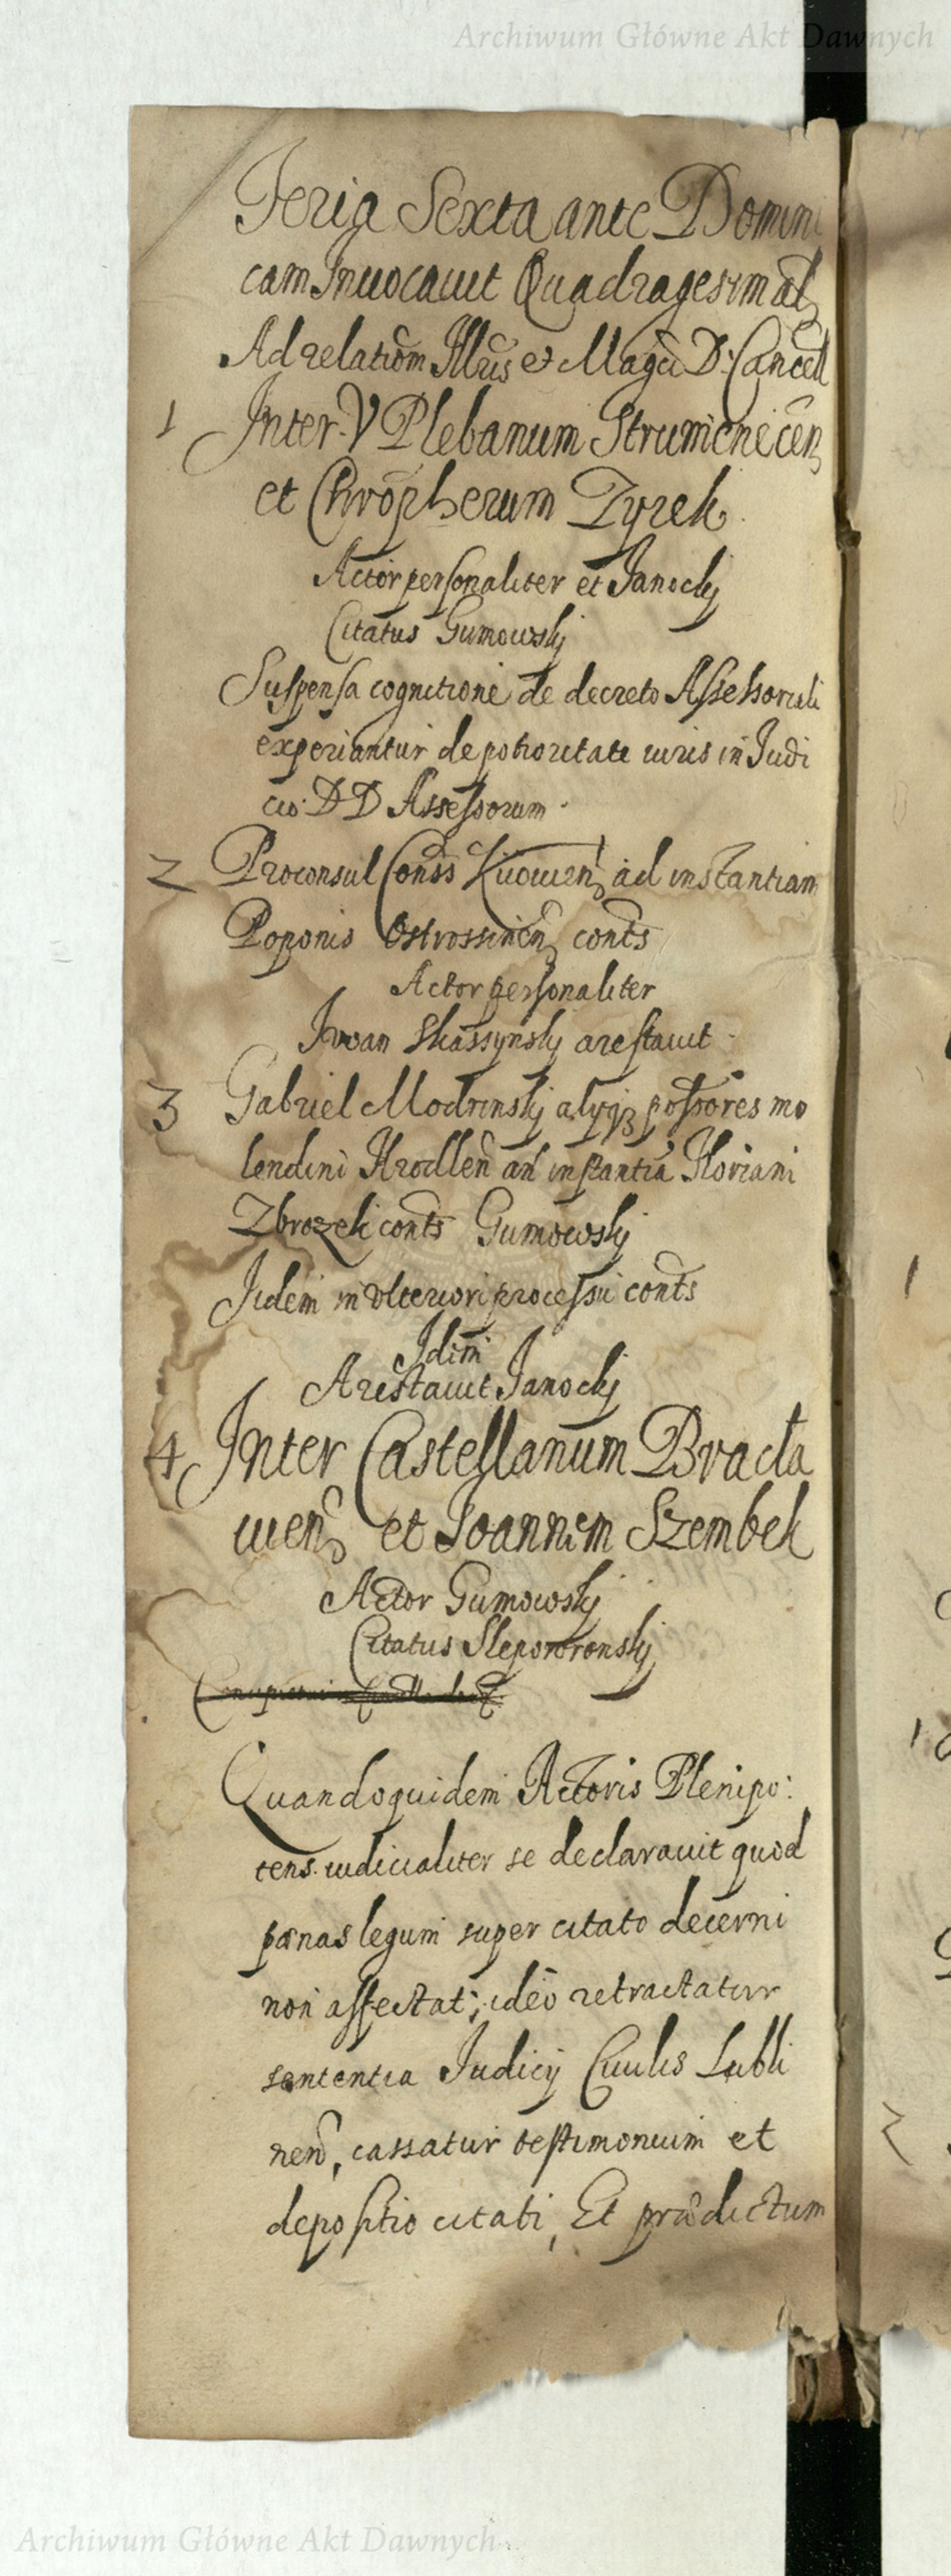 Archiwum Główne Akt Dawnych
Feria Sexta ante Domini
cam Inuocauit Quadragesimal
Ad relatiom Illris et Magci D. Cancell
1 Inter V Plebanum Strumienicen
et Chropherum Tyrek
Actor personaliter et Janockj
Citatus Gumowskj
Suspensa cognitione de decreto Assessoriali
experiantur de potioritate iuris in Judi
cio D D Assessorum
2 Proconsul Conss Kiiouien ad instantiam
Poponis Ostrossinen conts
Actor personaliter
Iwan Skassynskj arestauit
3 Gabriel Modrinskj alyq possores mo
lendini Hrodlen ad instantia Floriani
Zbrozek conts Gumowskj
Iidem in vlteriori processu conts
Idim
Arestauit Janockj
4 Inter Castellanum Bracla
uien et Ioannem Szembek
Actor Gumowskj
Citatus Slepororonskj
Quandoquidem Actoris Plenipo:
tens iudicialiter se declarauit quod
pœnas legum super citato decerni
non affectat; ideo retractatur
sententia Judicij Ciuilis Lubli
nen, cassatur testimonium et
depositio citati, Et prædictum
Archiwum Główne Akt Dawnych